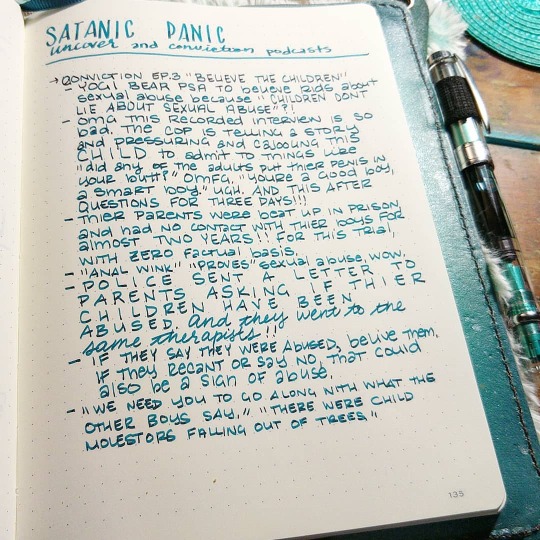 SATANIC PANIC
uncover and conviction podcasts
→ CONVICTION EP.3 "BELIEVE THE CHILDREN"
- YOGI BEAR PSA TO believe kids about
sexual abuse because "CHILDREN DON'T
LIE ABOUT SEXUAL ABUSE"?!
- OMG THIS RECORDED INTERVIEW IS SO
bad. THE COP IS TELLING a STORY
and PRESSURING and CAJOOLING THIS
CHILD to admit to THINGS LIKE
"did any of the adults put thier penis in
your butt?" OMFG. "You're a good boy,
a smart boy." UGH. AND THIS AFTER
QUESTIONS FOR THREE DAYS!!!
- THIER PARENTS WERE beat UP IN PRISON,
and had no contact with thier boys FOR
almost TWO YEARS!! FOR This Trial,
WITH ZERO factual basis.
- "ANAL WINK" "PROVES" sexual abuse, wow.
- POLICE SENT A LETTER TO
PARENTS ASKING IF THIER
CHILDREN HAVE BEEN
ABUSED. And they went to the
same therapists!!
- IF THEY SAY THEY WERE ABUSED, belive them.
IF they RECANT OR Say NO, that could
also be a sign of abuse.
- "WE NEED YOU TO GO ALONG WITH WHAT THE
OTHER BOYS SAY." "THERE WERE CHILD
MOLESTORS FALLING OUT OF TREES"
135